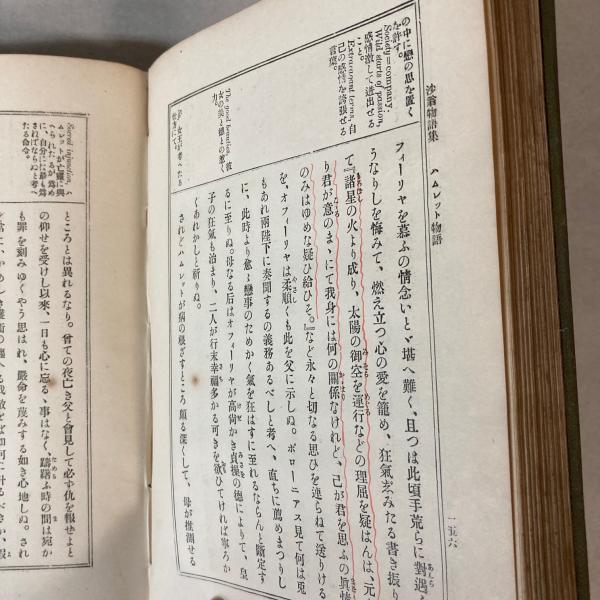 沙翁物語集　ハムレット物語
一五六
の中に戀の思を置く
を許す。
Society=company.
Wild starts of passion,
感情激して迸出せる
こと。
Extravagant terms, 自
己の感情を誇張せる
言葉。
The good beauties, 彼
女の美と德との導く
力。
フィーリヤを慕ふの情念いとゞ堪へ難く、且つは此頃手荒らに對遇
うなりしを悔みて、燃え立つ心の愛を籠め、狂氣ゑみたる書き振り
て『諸星の火より成り、太陽の御空を運行などの理屈を疑はんは、元
り君が意のまゝにて我身には何の關係なけれど、己が君を思ふの眞情
のみはゆめな疑ひ給ひそ。』など永々と切なる思ひを連らねて送りける
を、オフィーリヤは柔順くも此を父に示しぬ。ポローニアス見て何は兎
もあれ兩陛下に奏聞するの義務あるべしと考へ、直ちに薦めまつりし
に、此時より愈よ戀事のためかく氣を狂はすに至れるならんと斷定す
るに至りぬ。母なる后はオフィーリヤが高尚かき貞操の德によりて、皇
子の狂氣も治まり、二人が行末幸福多かる可きを欲ひてければ寧ろか
くあれかしと祈りぬ。
されどハムレットが病の根ざすところ頗る深くして、母が推測せる
ハムレットが亡靈に與
へられたるが爲め
に、自分に最も爲
さればならぬと考へ
たる命令。
ところとは異れるなり。曾ての夜亡き父と會見して必ず仇を報ぜよと
の仰せを受けし以來、一日も心に忘るゝ事はなく、躊躇ふ時の間は宛か
も罪を刻みゆくやう思はれ、嚴命を蔑みする如き心地しぬ。され